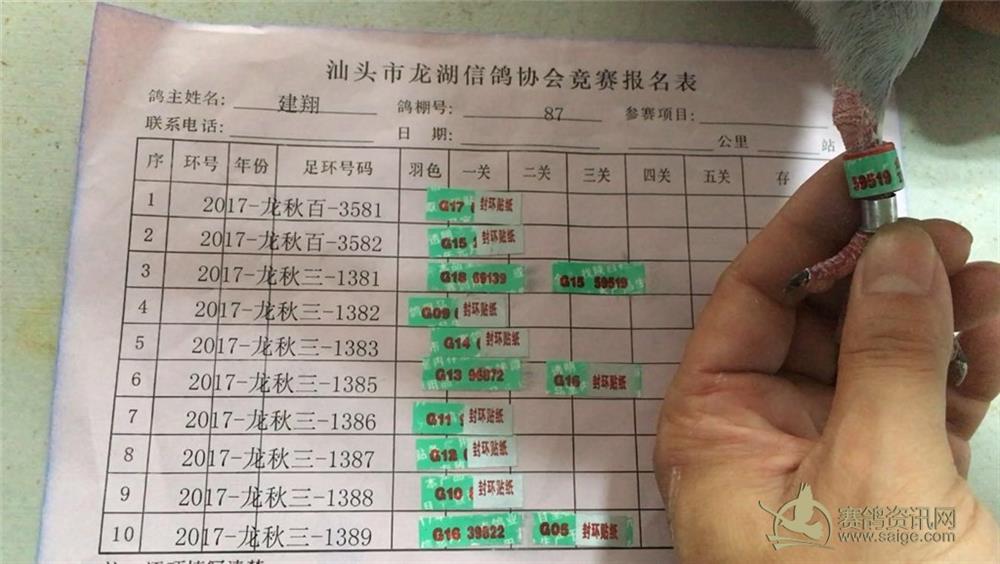 汕头市龙湖信鸽协会竞赛报名表
鸽主姓名: 建翔 鸽棚号: 87 参赛项目:
联系电话: 日 期: 公里 站
序 环号 年份 足环号码 羽色 一关 二关 三关 四关 五关 存
1 2017-龙秋百-3581 G17 封环贴纸
2 2017-龙秋百-3582 G15 封环贴纸
3 2017-龙秋三-1381 G18 69139 G15 59519
4 2017-龙秋三-1382 G09 封环贴纸
5 2017-龙秋三-1383 G14 封环贴纸
6 2017-龙秋三-1385 G13 96872 G16 封环贴纸
7 2017-龙秋三-1386 G11 封环贴纸
8 2017-龙秋三-1387 G12 封环贴纸
9 2017-龙秋三-1388 G10 封环贴纸
10 2017-龙秋三-1389 G16 39822 G05 封环贴纸
59519
赛鸽资讯网
www.saige.com